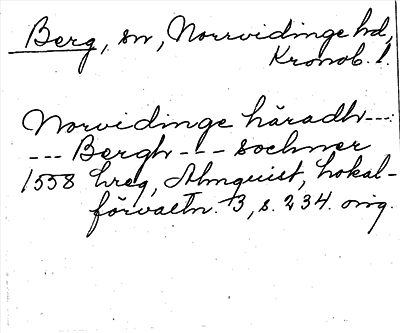 Berg, sn, Norrvidinge hd,
Kronob. l.
Norvidinge häradh ---:
--- Bergh --- sochner
1558 hreg, Almquist, Lokal-
förvaltn. 3, s. 234. orig.